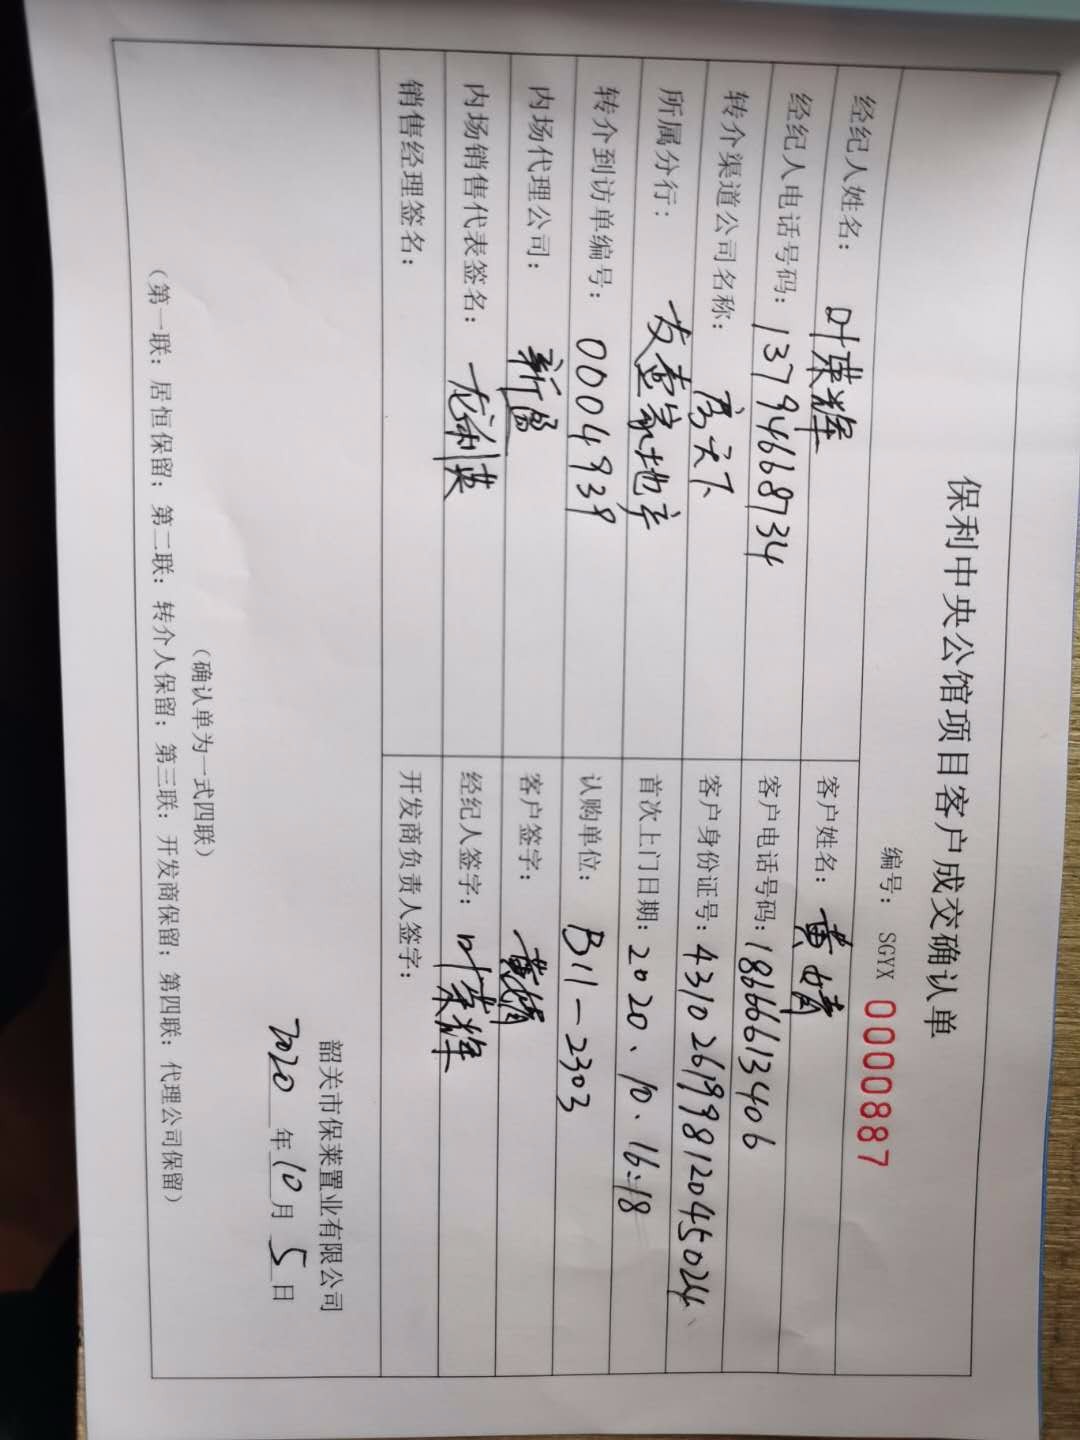 保利中央公馆项目客户成交确认单
编号： SGYX 0000887
经纪人姓名： 叶荣辉
客户姓名： 黄婧
经纪人电话号码：13794668734
客户电话号码：18666613406
转介渠道公司名称： 房天下
客户身份证号：431026199812045024
所属分行： 安壹家地产
首次上门日期：2020、10、16:18
转介到访单编号：0004939
认购单位： B11-2303
内场代理公司： 新盈
客户签字： 黄婧
内场销售代表签名： 龙利英
经纪人签字： 叶荣辉
销售经理签名：
开发商负责人签字：
韶关市保莱置业有限公司
2020年10月5日
（确认单为一式四联）
（第一联：居恒保留；第二联：转介人保留；第三联：开发商保留；第四联：代理公司保留）